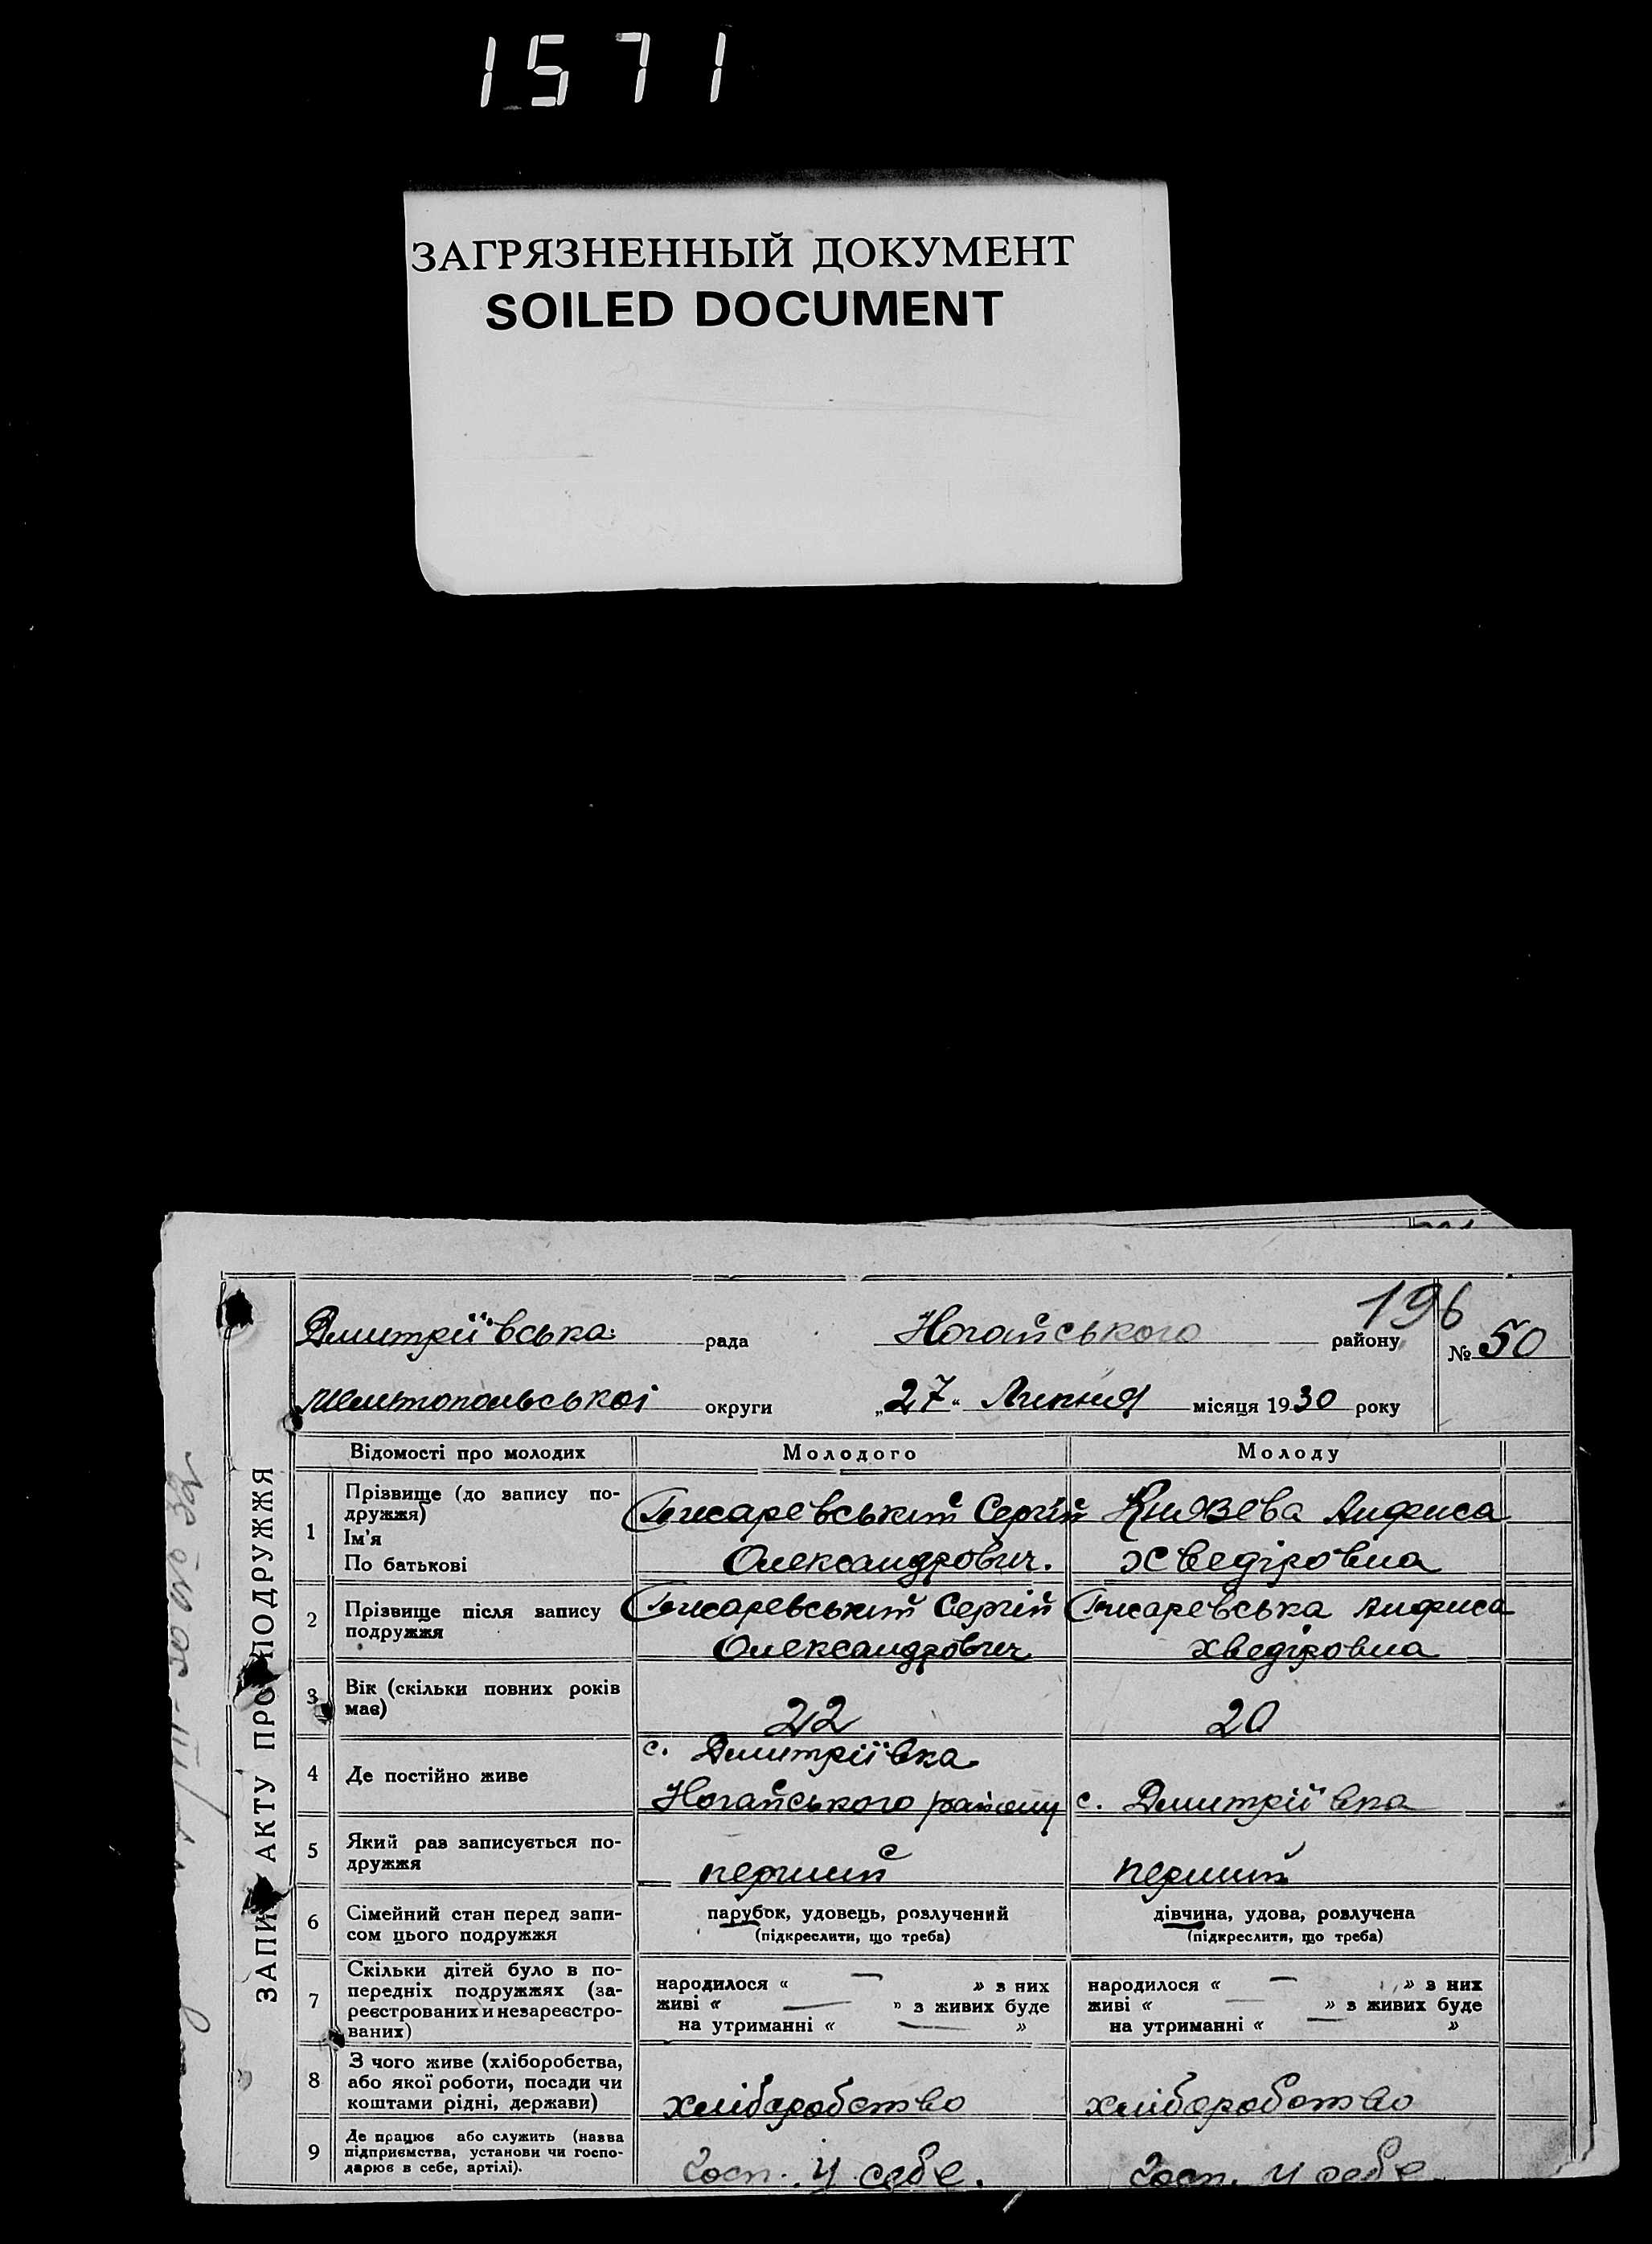 1571
ЗАГРЯЗНЕННЫЙ ДОКУМЕНТ
SOILED DOCUMENT
196
Дмитріївська рада Ногайського району № 50
Мелітопольської округи „27“ Липня місяця 1930 року
ЗАПИС АКТУ ПРО ПОДРУЖЖЯ
Відомості про молодих Молодого Молоду
1 Прізвище (до запису по-
дружжя)
Ім'я
По батькові
Писаревський Сергій
Олександрович.
Князева Анфиса
Хведіровна
2 Прізвище після запису
подружжя
Писаревський Сергій
Олександрович
Писаревська Анфиса
Хведіровна
3 Вік (скільки повних років
має)
22 20
4 Де постійно живе
с. Дмитріївка
Ногайського району
с. Дмитріївка
5 Який раз записується по-
дружжя
перший перший
6 Сімейний стан перед запи-
сом цього подружжя
парубок, удовець, розлучений
(підкреслити, що треба)
дівчина, удова, розлучена
(підкреслити, що треба)
7 Скільки дітей було в по-
передніх подружжях (за-
реєстрованих и незареєстро-
ваних)
народилося « — » з них
живі « — » з живих буде
на утриманні « — »
народилося « — » з них
живі « — » з живих буде
на утриманні « — »
8 З чого живе (хліборобства,
або якої роботи, посади чи
коштами рідні, держави)
хліборобство хліборобство
9 Де працює або служить (назва
підприємства, установи чи госпо-
дарює в себе, артілі).
Госп. у себе. Госп. у себе.